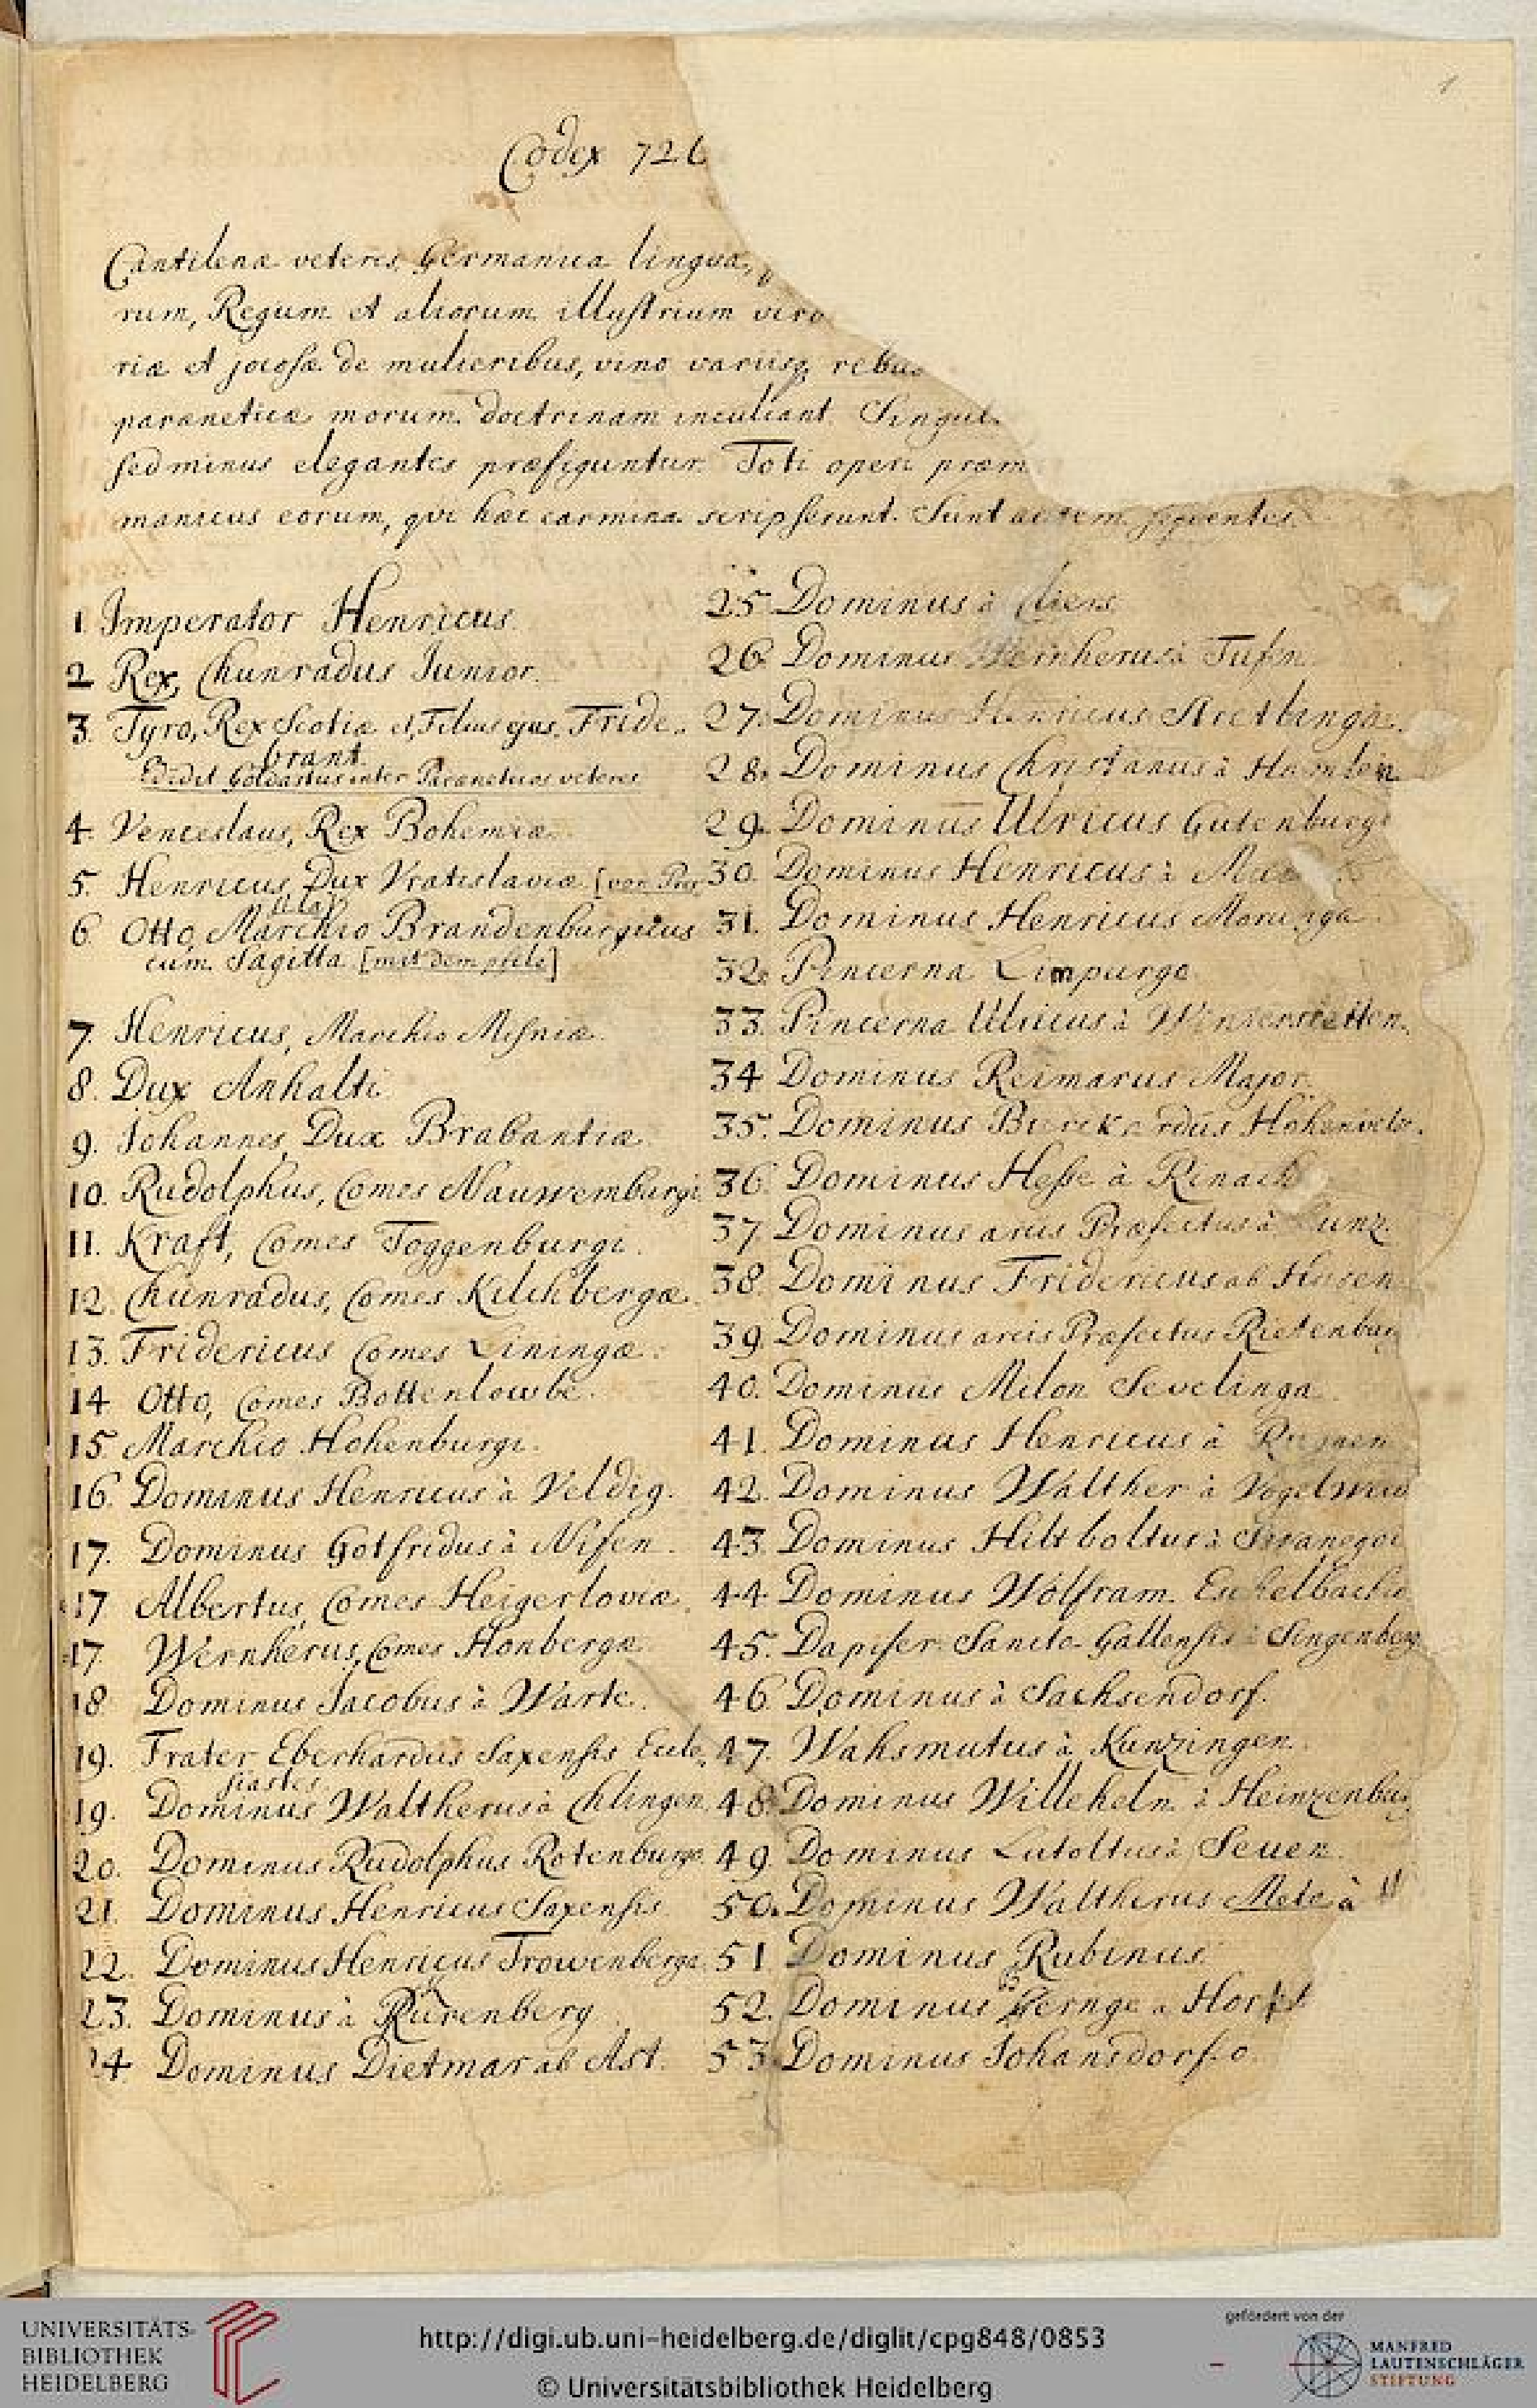 1
Codex 726
Cantilenæ veteres, Germanica lingua,
rum, Regum et aliorum illustrium viro
riæ et jocosæ de mulieribus, vino variisq rebus
paræneticæ morum doctrinam inculcant. Singul
sed minus elegantes præfiguntur. Toti operi præm
manicus eorum, qvi hæc carmina scripserunt. Sunt autem sequentes.
1. Imperator Henricus.
2 Rex, Chunradus Junior.
3. Tyro, Rex Scotiæ et, Filius ejus, Fride„
brant.
Edidit Goldastus inter Paræneticos veteres
4. Venceslaus, Rex Bohemiæ.
5. Henricus, Dux Vratislaviæ [von Pres„
sla]
6. Otto, Marchio Brandenburgicus
cum Sagitta [mit dem pfile]
7. Henricus, Marchio Misniæ.
8. Dux Anhalti.
9. Johannes, Dux Brabantiæ.
10. Rudolphus, Comes Nauwemburgi.
11. Kraft, Comes Toggenburgi.
12. Chunradus, Comes Kilchbergæ.
13. Fridericus Comes Liningæ.
14 Otto, Comes Bottenlowbe.
15. Marchio Hohenburgi.
16. Dominus Henricus à Veldig.
17. Dominus Gotfridus à Nifen.
17 Albertus, Comes Heigerloviæ.
17. Wernherus, Comes Honbergæ.
18 Dominus Jacobus à Warte.
19. Frater Eberhardus Saxensis Eccle„
siastes.
19. Dominus Waltherus à Chlingen.
20. Dominus Rudolphus Rotenburgo.
21. Dominus Henricus Saxensis.
22. Dominus Henricus Frowenberga.
23. Dominus à Kürenberg.
24 Dominus Dietmar ab Ast.
25. Dominus à Gliers.
26. Dominus Wernherus à Tufen.
27. Dominus Henricus Stretlinga.
28. Dominus Christanus à Hamlein.
29. Dominus Ulricus Gutenburgo
30. Dominus Henricus à
31. Dominus Henricus Morunga.
32. Pincerna Limpurgo
33. Pincerna Ulricus à Winterstetten.
34 Dominus Reimarus Major.
35. Dominus Burckardus Hohenvels.
36. Dominus Hesse à Rinach
37. Dominus arcis Præfectus à Lunz.
38. Dominus Fridericus ab Husen.
39. Dominus arcis Præfectus Rietenburg
40. Dominus Milon Sevelinga
41. Dominus Henricus à
42. Dominus Walther à Vogelweid
43. Dominus Hiltboltus à Swanegoi
44. Dominus Wolfram Eschelbachio
45. Dapifer Sancto-Gallensis à Singenberg
46. Dominus à Sachsendorf.
47. Wahsmutus à Kunzingen.
48. Dominus Willeheln. à Heinzenburg
49. Dominus Lutoltus à Seuen.
50. Dominus Waltherus Metz à
51. Dominus Rubinus.
52. Dominus Bernge à Horh
53. Dominus Johansdorf.o.
UNIVERSITÄTS-
BIBLIOTHEK
HEIDELBERG
http://digi.ub.uni-heidelberg.de/diglit/cpg848/0853
© Universitätsbibliothek Heidelberg
gefördert von der
MANFRED
LAUTENSCHLÄGER
STIFTUNG